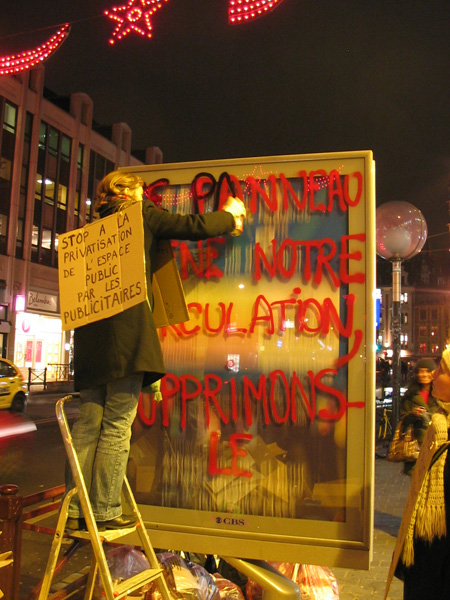 STOP À LA
PRIVATISATION
DE L'ESPACE
PUBLIC
PAR LES
PUBLICITAIRES
CE PANNEAU
GÊNE NOTRE
CIRCULATION,
SUPPRIMONS-
LE
CBS